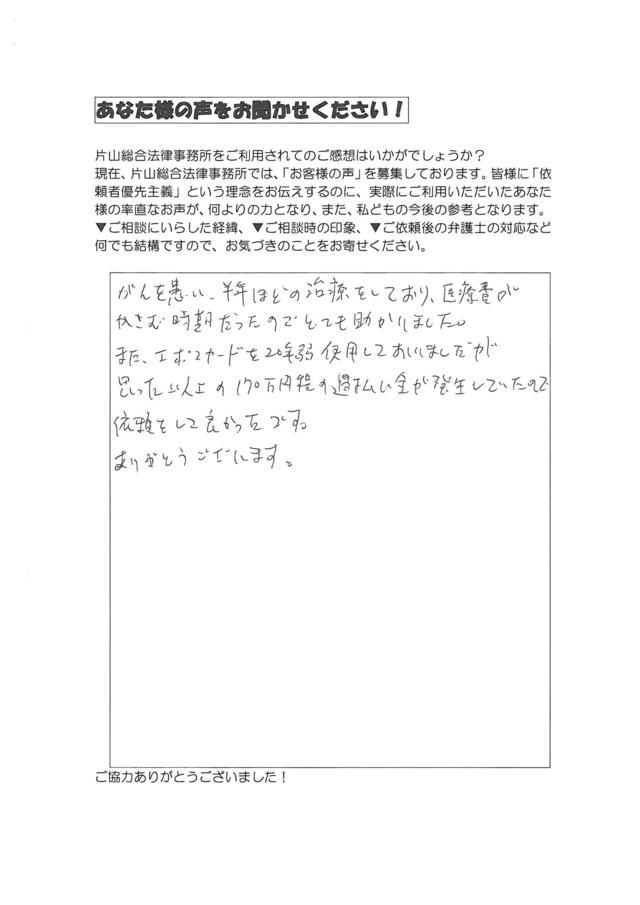 あなた様の声をお聞かせください！
片山総合法律事務所をご利用されてのご感想はいかがでしょうか？
現在、片山総合法律事務所では、「お客様の声」を募集しております。皆様に「依
頼者優先主義」という理念をお伝えするのに、実際にご利用いただいたあなた
様の率直なお声が、何よりの力となり、また、私どもの今後の参考となります。
▼ご相談にいらした経緯、▼ご相談時の印象、▼ご依頼後の弁護士の対応など
何でも結構ですので、お気づきのことをお寄せください。
がんを患い、半年ほどの治療をしており、医療費が
かさむ時期だったのでとても助かりました。
また、エポスカードを20年弱使用しておりましたが
思った以上の170万円程の過払い金が発生していたので
依頼をして良かったです。
ありがとうございます。
ご協力ありがとうございました！